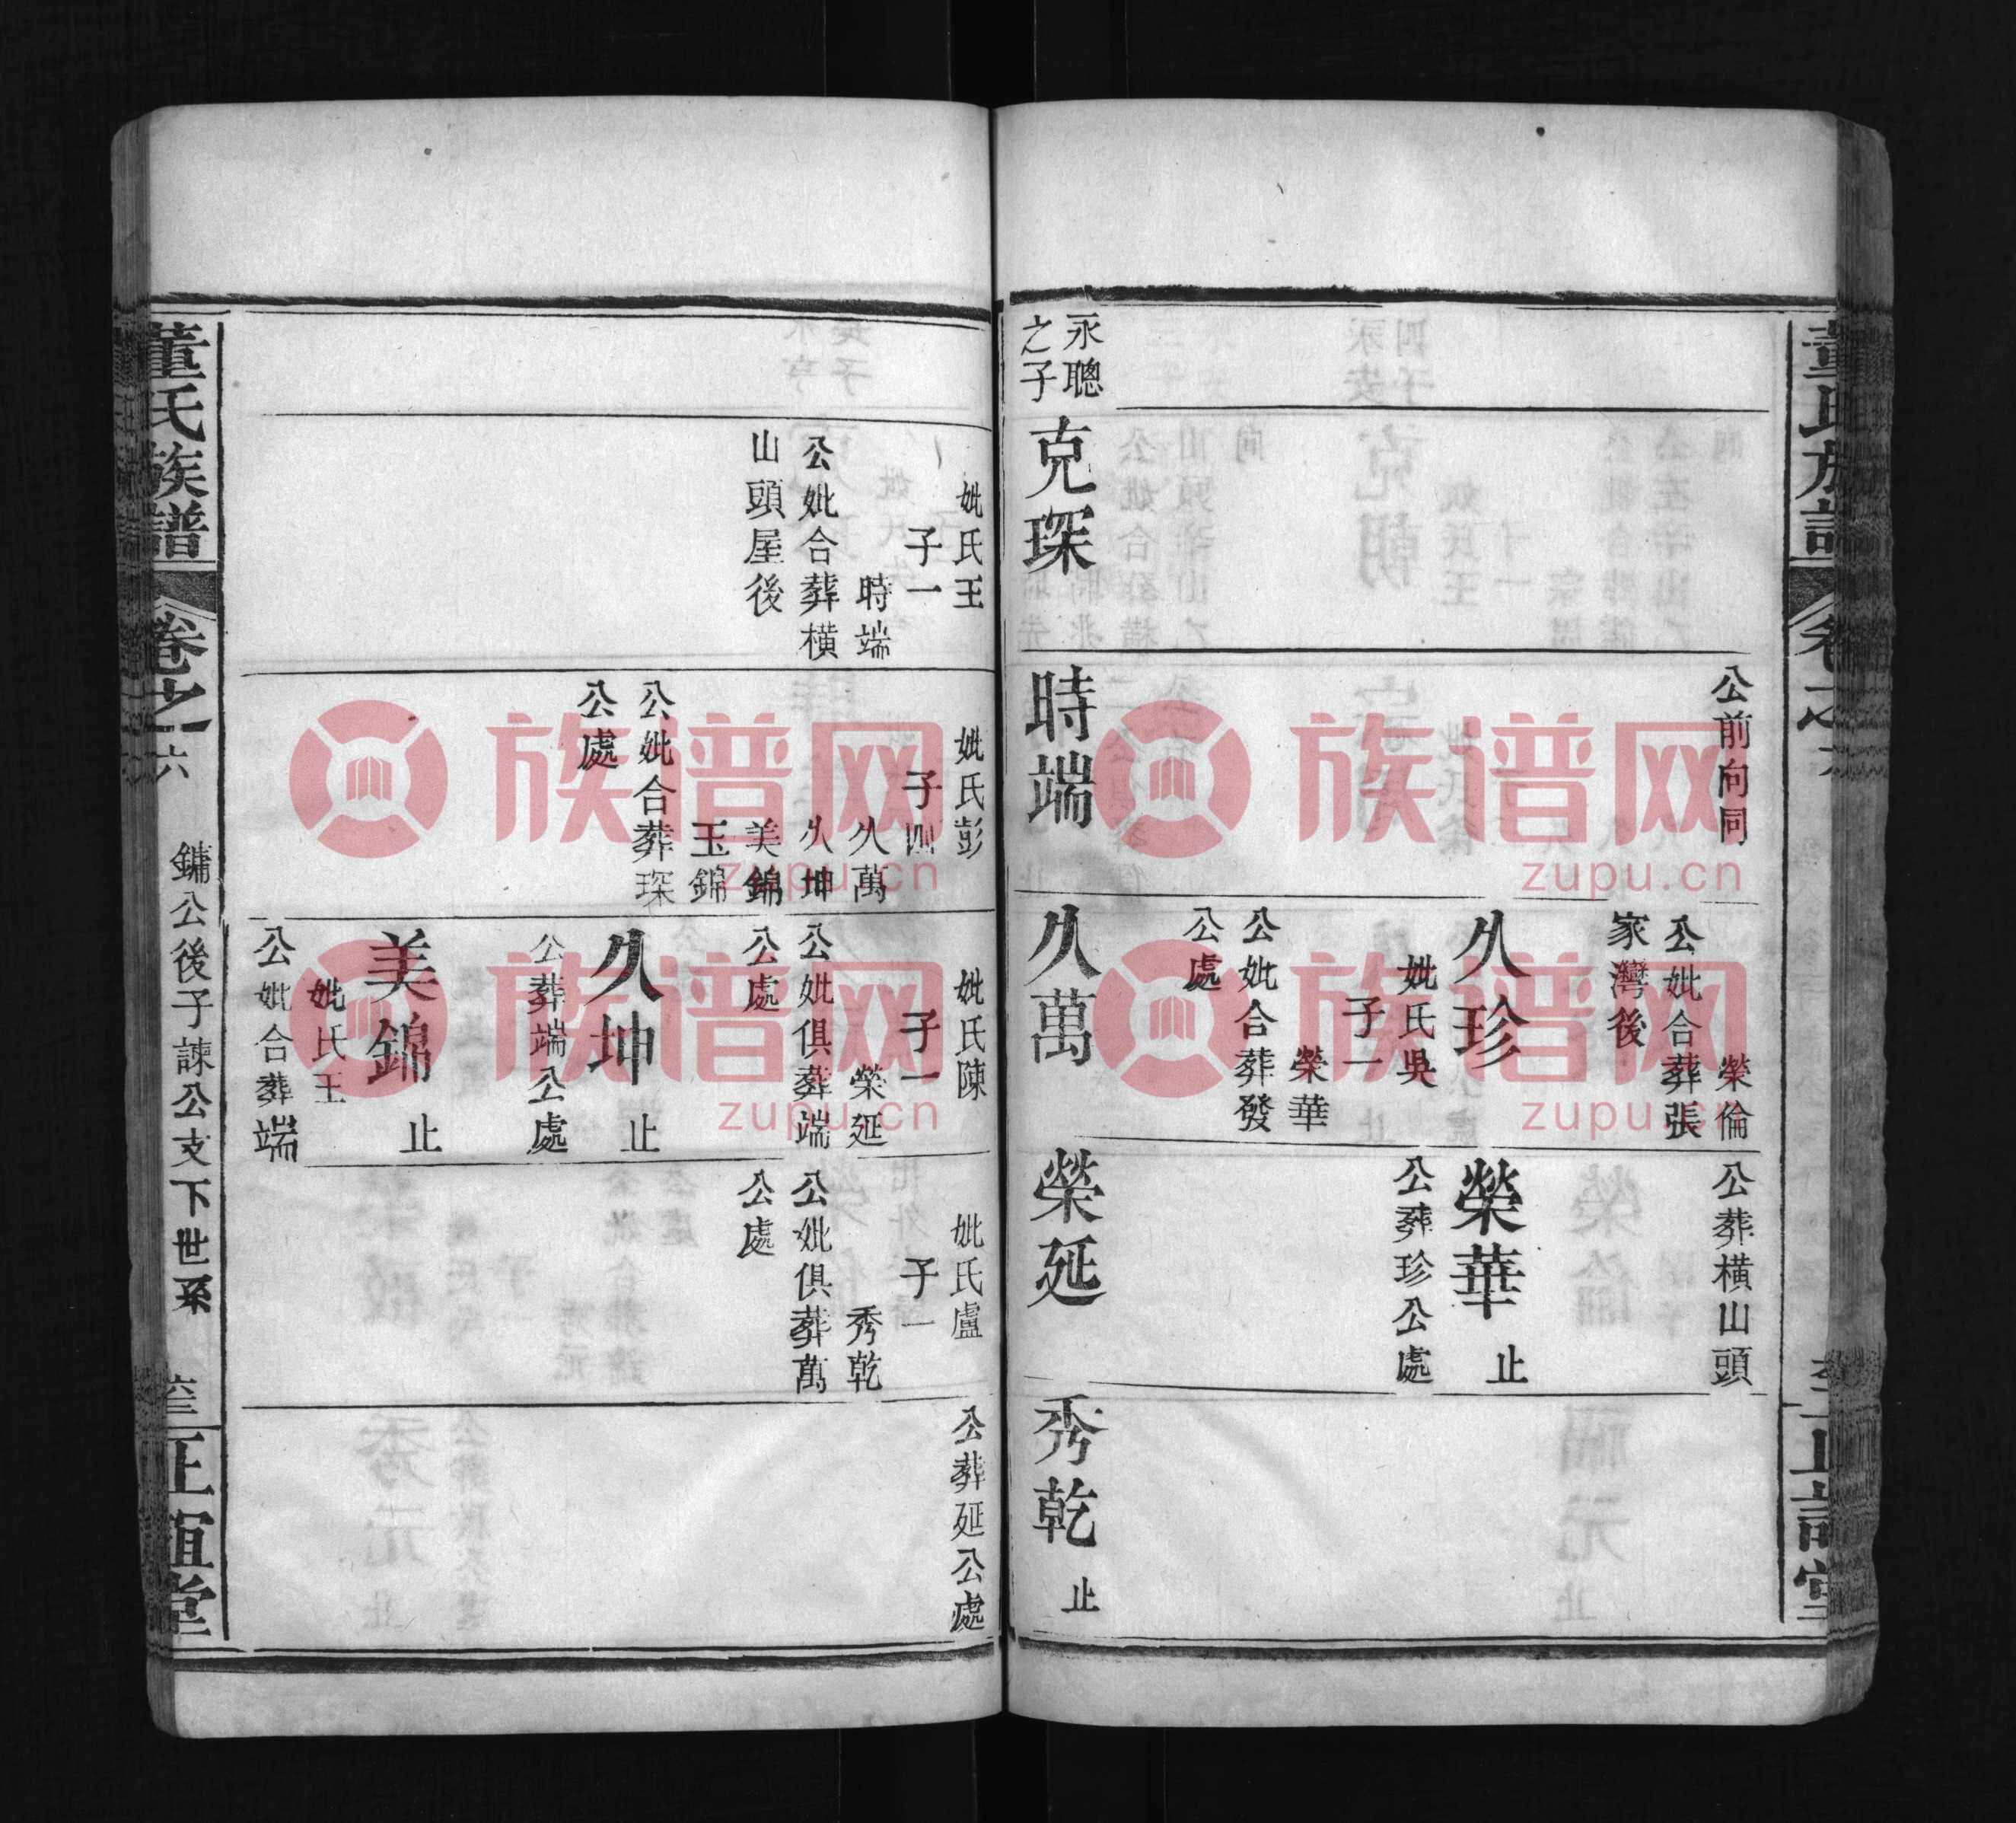 董氏族譜
卷之六
公前向同
榮倫
公妣合葬張
家灣後
久珍
妣氏吳
子一
榮華
公妣合葬發
公處
公葬橫山頭
榮華 止
公葬珍公處
永聰
之子
克琛
時端
久萬
榮延
秀乾 止
妣氏王
子一
時端
公妣合葬橫
山頭屋後
妣氏彭
子四
久萬
久坤
美錦
玉錦
公妣合葬琛
公處
妣氏陳
子一
榮延
公妣俱葬端
公處
久坤 止
公葬端公處
美錦 止
妣氏王
公妣合葬端
妣氏盧
子一
秀乾
公妣俱葬萬
公處
公葬延公處
董氏族譜
卷之六
鏞公後子諫公支下世系
正誼堂
族谱网
zupu.cn
族谱网
zupu.cn
族谱网
zupu.cn
族谱网
zupu.cn